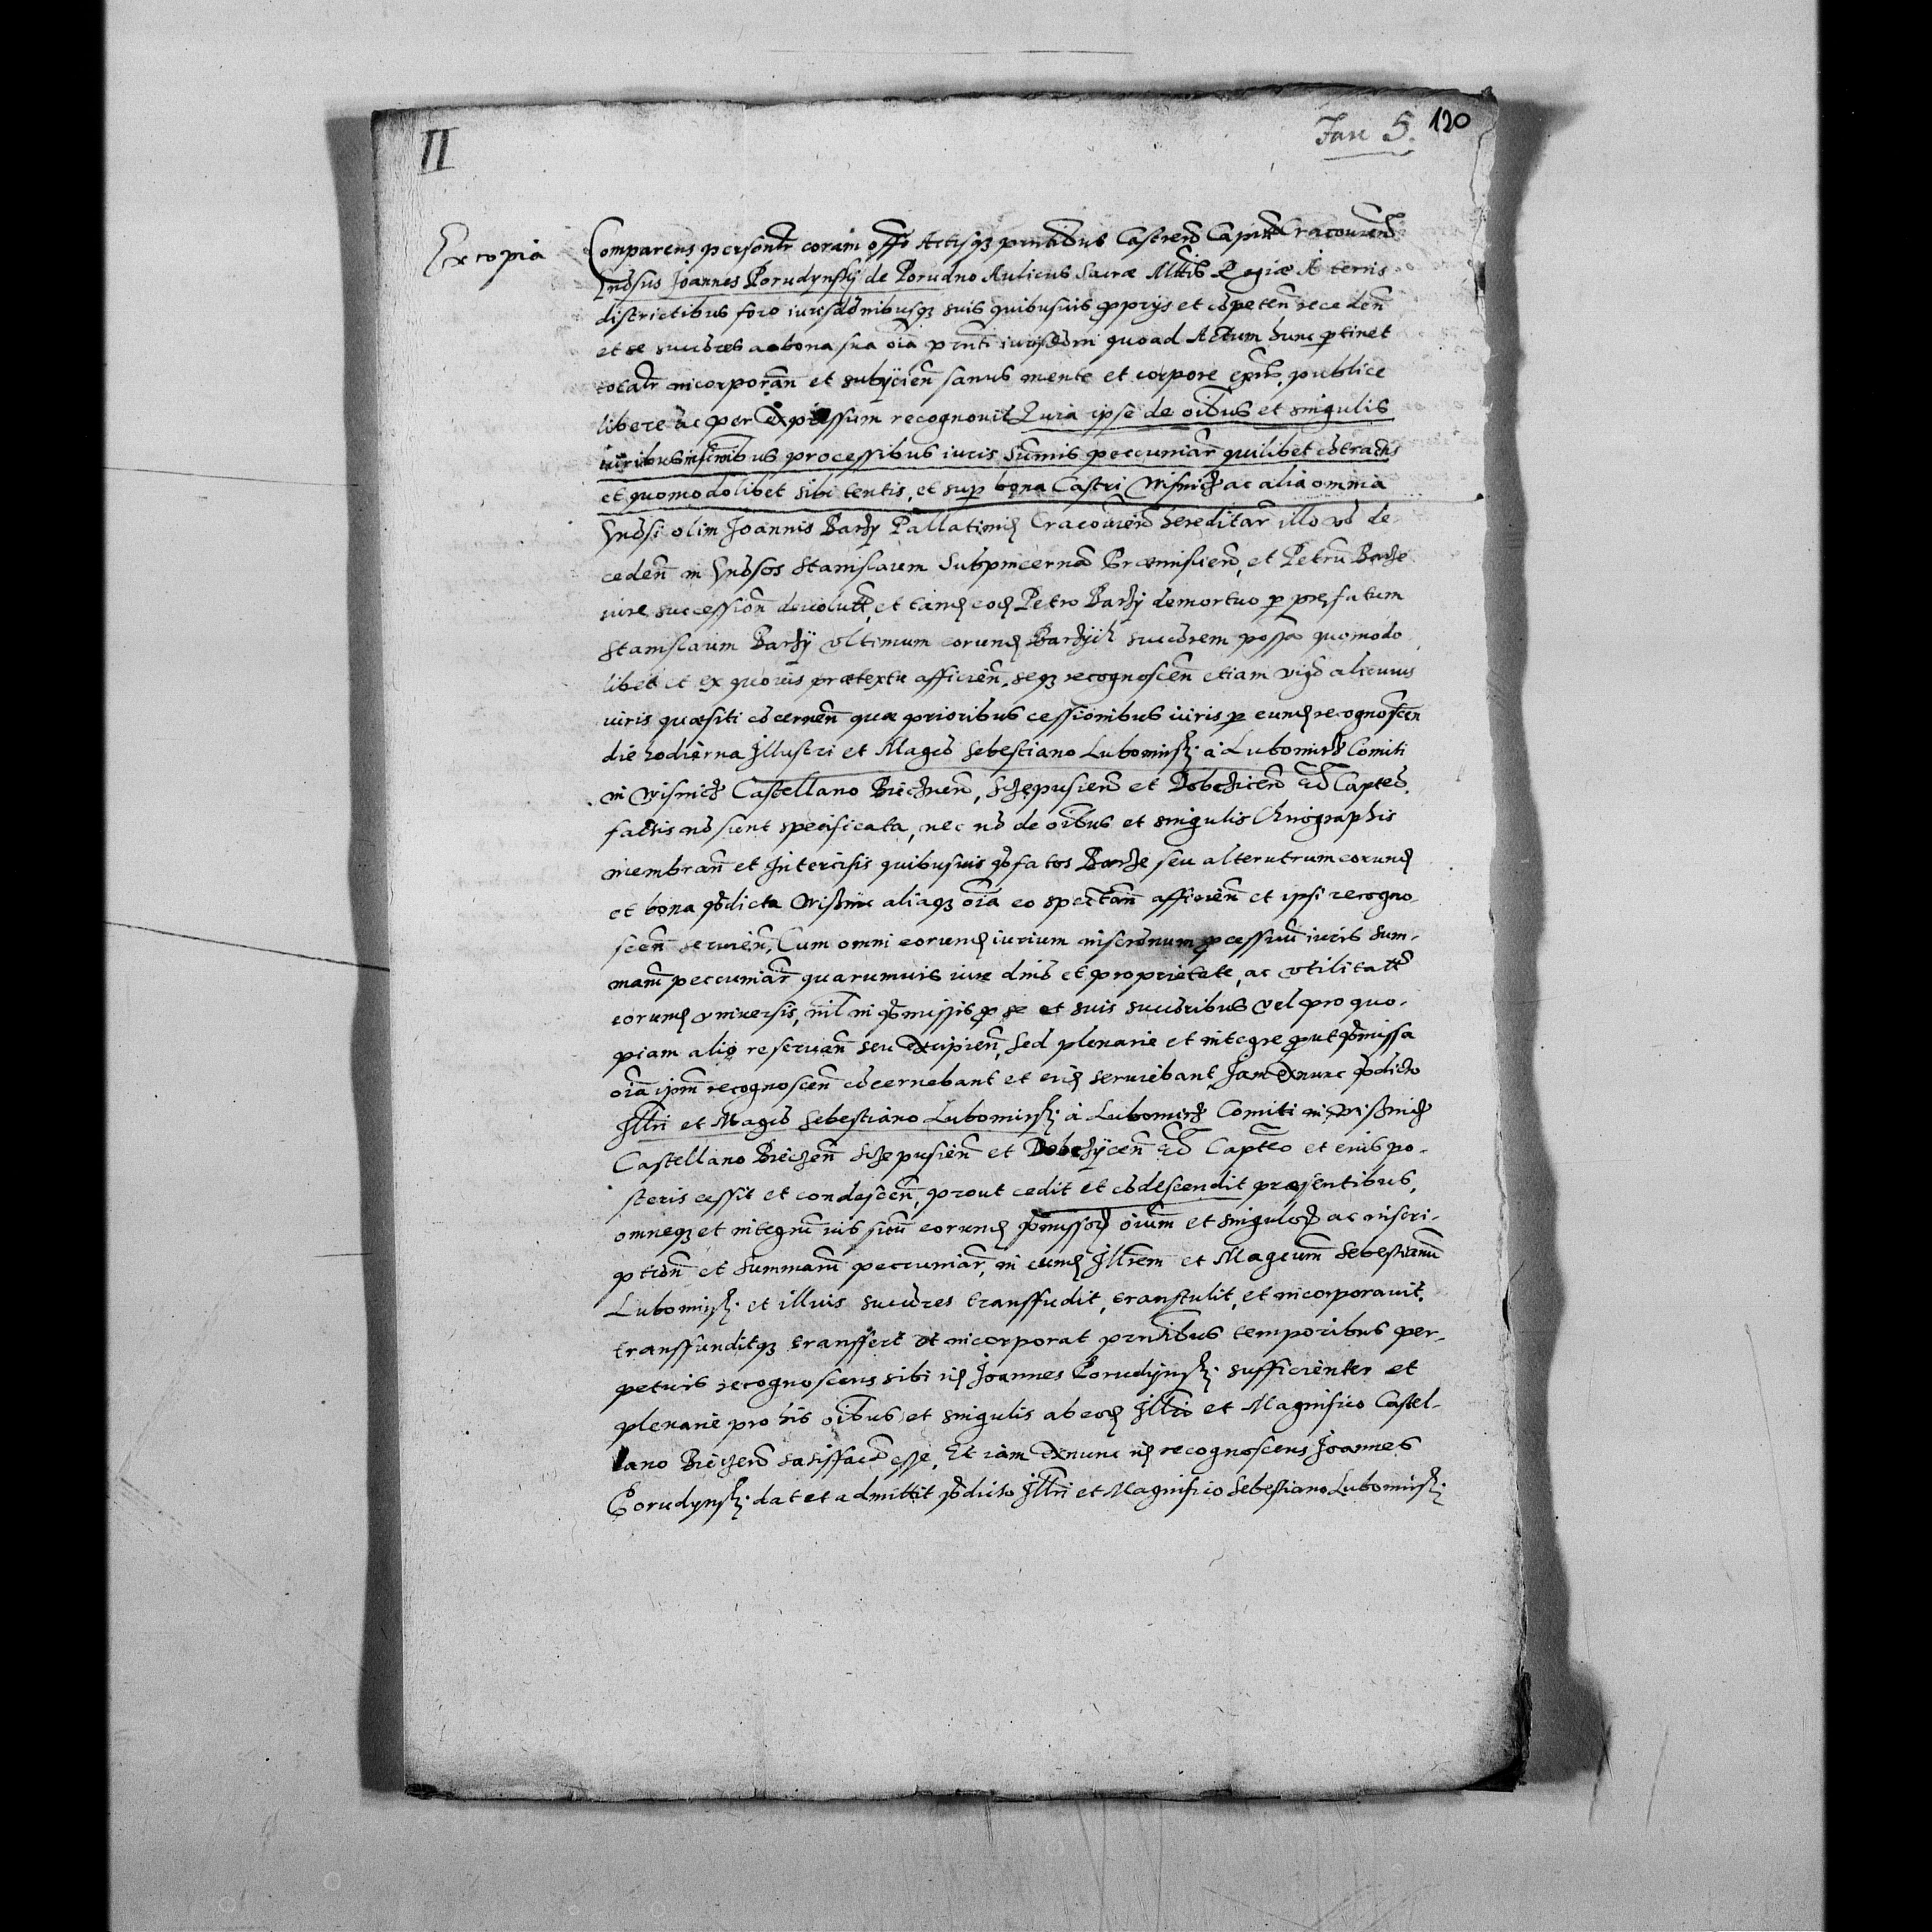 II
Jan 5. 120
Ex copia
Comparens personłr coram offo Actisq3 pntibus Castren Capitł Cracouien
Gnosus Joannes Porudynsky de Porudno Aulicus Sacræ Mttis Regiæ A terris
districtibus foro iurisdonibusq3 suis quibusuis pprijs et copeten receden
et se succores ac bona sua oia pnti iurisdoni quoad Actum hunc ptinet
totalr incorporan et subijcien sanus mente et corpore exns, publice
libere ac per expressum recognouit Quia ipse de oibus et singulis
iuribus inscrinibus processibus iuris summis peccuniar quilibet cotractis
et quomodolibet sibi tentis, et sup bona Castri Wisnicz ac alia omnia
Gnosi olim Joannis Barzy Pallatini Cracouien hereditar illo vo de
ceden in Gnosos Stanislaum Subpincernam Præmislien, et Petru Barze
iure succession deuolutt, et tande eode Petro Barzy demortuo p præfatum
Stanislaum Barzy vltimum eorunde Barzych succorem posse quomodo
libet et ex quouis prætextu afficien, seq3 recognoscen etiam vigo alicuius
iuris quæsiti cocernen quæ prioribus cessionibus iuris p eunde recognoscen
die hodierna Illustri et Magco Sebestiano Lubomirsky a Lubomirz Comiti
in Wisnicz Castellano Bieczen, Sczepusien et Dobczicen Capteo
factis no sunt specificata, nec no de oibus et singulis Chirographis
membran et Intercisis quibusuis pfatos Barze seu alterutrum eorunde
et bona pdicta Wisznic aliaq3 oia eo spectan afficien et ipsi recogno-
scen seruien, Cum omni eorunde iurium inscrionum pcessuu iuris sum-
maru peccuniar quarumuis iure dnio et proprietate, ac vtilitatt
eorunde vniuersis, nil in pmissis p se et suis succoribus vel pro quo-
piam alio reseruan seu excipien, Sed plenarie et integre put pmissa
oia ipm recognoscen cocernebant et eide seruiebant, Jam exnunc pdicto
Illri et Magco Sebestiano Lubomirsky a Lubomirz Comiti in Wisznicz
Castellano Biecen Sczepusien et Dobczycen Capteo et eius po-
steris cessit et condescen, prout cedit et codescendit præsentibus,
omneq3 et integru ius suu eorunde pmissor oium et singulor ac inscri-
ption et summaru peccuniar, in eunde Illrem et Magcum Sebestianu
Lubomirsky et illius succores transfudit, transtulit, et incorporauit.
transfunditq3 transfert et incorporat pntibus temporibus per-
petuis recognoscens sibi ide Joannes Porudynsky sufficienter et
plenarie pro his oibus et singulis ab eode Illri et Magnifico Castel-
lano Biecen satisfacm esse, Et iam exnunc ide recognoscens Joannes
Porudynsky dat et admittit pdicto Illri et Magnifico Sebestiano Lubomirsky